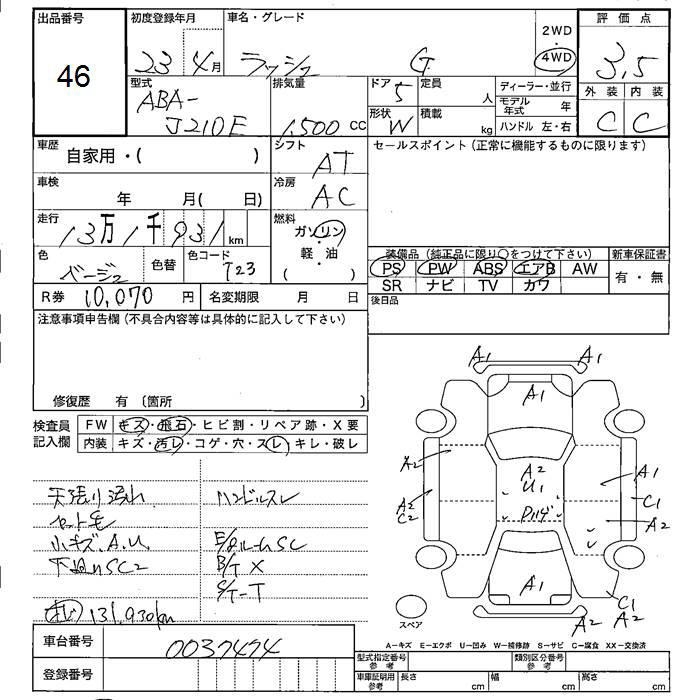 出品番号
46
初度登録年月
23 年 4 月
車名・グレード
ラッシュ G
2WD
・
4WD
評価点
3.5
外装 内装
C C
型式
ABA-
J210E
排気量
1,500 cc
ドア
5
形状
W
定員
人
積載
kg
ディーラー・並行
モデル年式 年
ハンドル 左・右
車歴
自家用・( )
シフト
AT
車検
年 月( 日)
冷房
AC
走行
13万1千931 km
燃料
ガソリン
軽・油
( )
色
ベージュ
色替
色コード
T23
R券 10,070 円
名変期限 月 日
セールスポイント (正常に機能するものに限ります)
装備品 (純正品に限り○をつけて下さい)
PS PW ABS エアB AW
SR ナビ TV カワ
新車保証書
有・無
後日品
注意事項申告欄 (不具合内容等は具体的に記入して下さい)
修復歴 有 〔箇所 〕
検査員
記入欄
FW キズ・飛石・ヒビ割・リペア跡・X要
内装 キズ・汚レ・コゲ・穴・スレ・キレ・破レ
天張り汚れ
小キズ.A.U.
131,930km
ハンドルスレ
E/gルームSC
B/T X
S/T-T
A1 A1
A1
A2
A2
U1
A1
A2
C2
C1
A2
A1
C1
A2 A2
スペア
A-キズ E-エクボ U-凹み W-補修跡 S-サビ C-腐食 XX-交換済
車台番号 0037474
登録番号
型式指定番号
参考
類別区分番号
参考
車庫証明用
参考
長さ cm
幅 cm
高さ cm